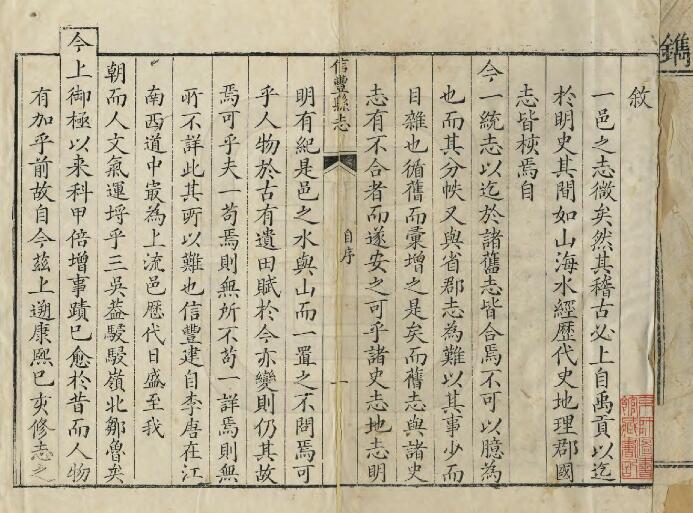 鐫
敘
一邑之志微矣然其稽古必上自禹貢以迄
於明史其間如山海水經歷代史地理郡國
志皆核焉自
今一統志以迄於諸舊志皆合焉不可以臆為
也而其分帙又與省郡志為難以其事少而
目雜也循舊而彙增之是矣而舊志與諸史
志有不合者而遂安之可乎諸史志地志明
信豐縣志
自序
一
明有紀是邑之水與山而一置之不問焉可
乎人物於古有遺田賦於今亦變則仍其故
焉可乎夫一苟焉則無所不苟一詳焉則無
所不詳此其所以難也信豐建自李唐在江
南西道中最為上流邑歷代日盛至我
朝而人文氣運埒乎三吳葢駸駸嶺北鄒魯矣
今上御極以来科甲倍增事蹟已愈於昔而人物
有加乎前故自今茲上遡康熙已亥修志之